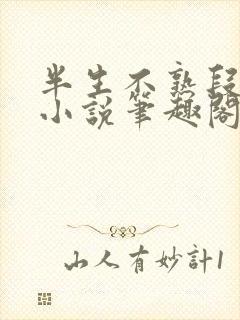 半生不熟段
小說筆趣閣
山人有妙計1